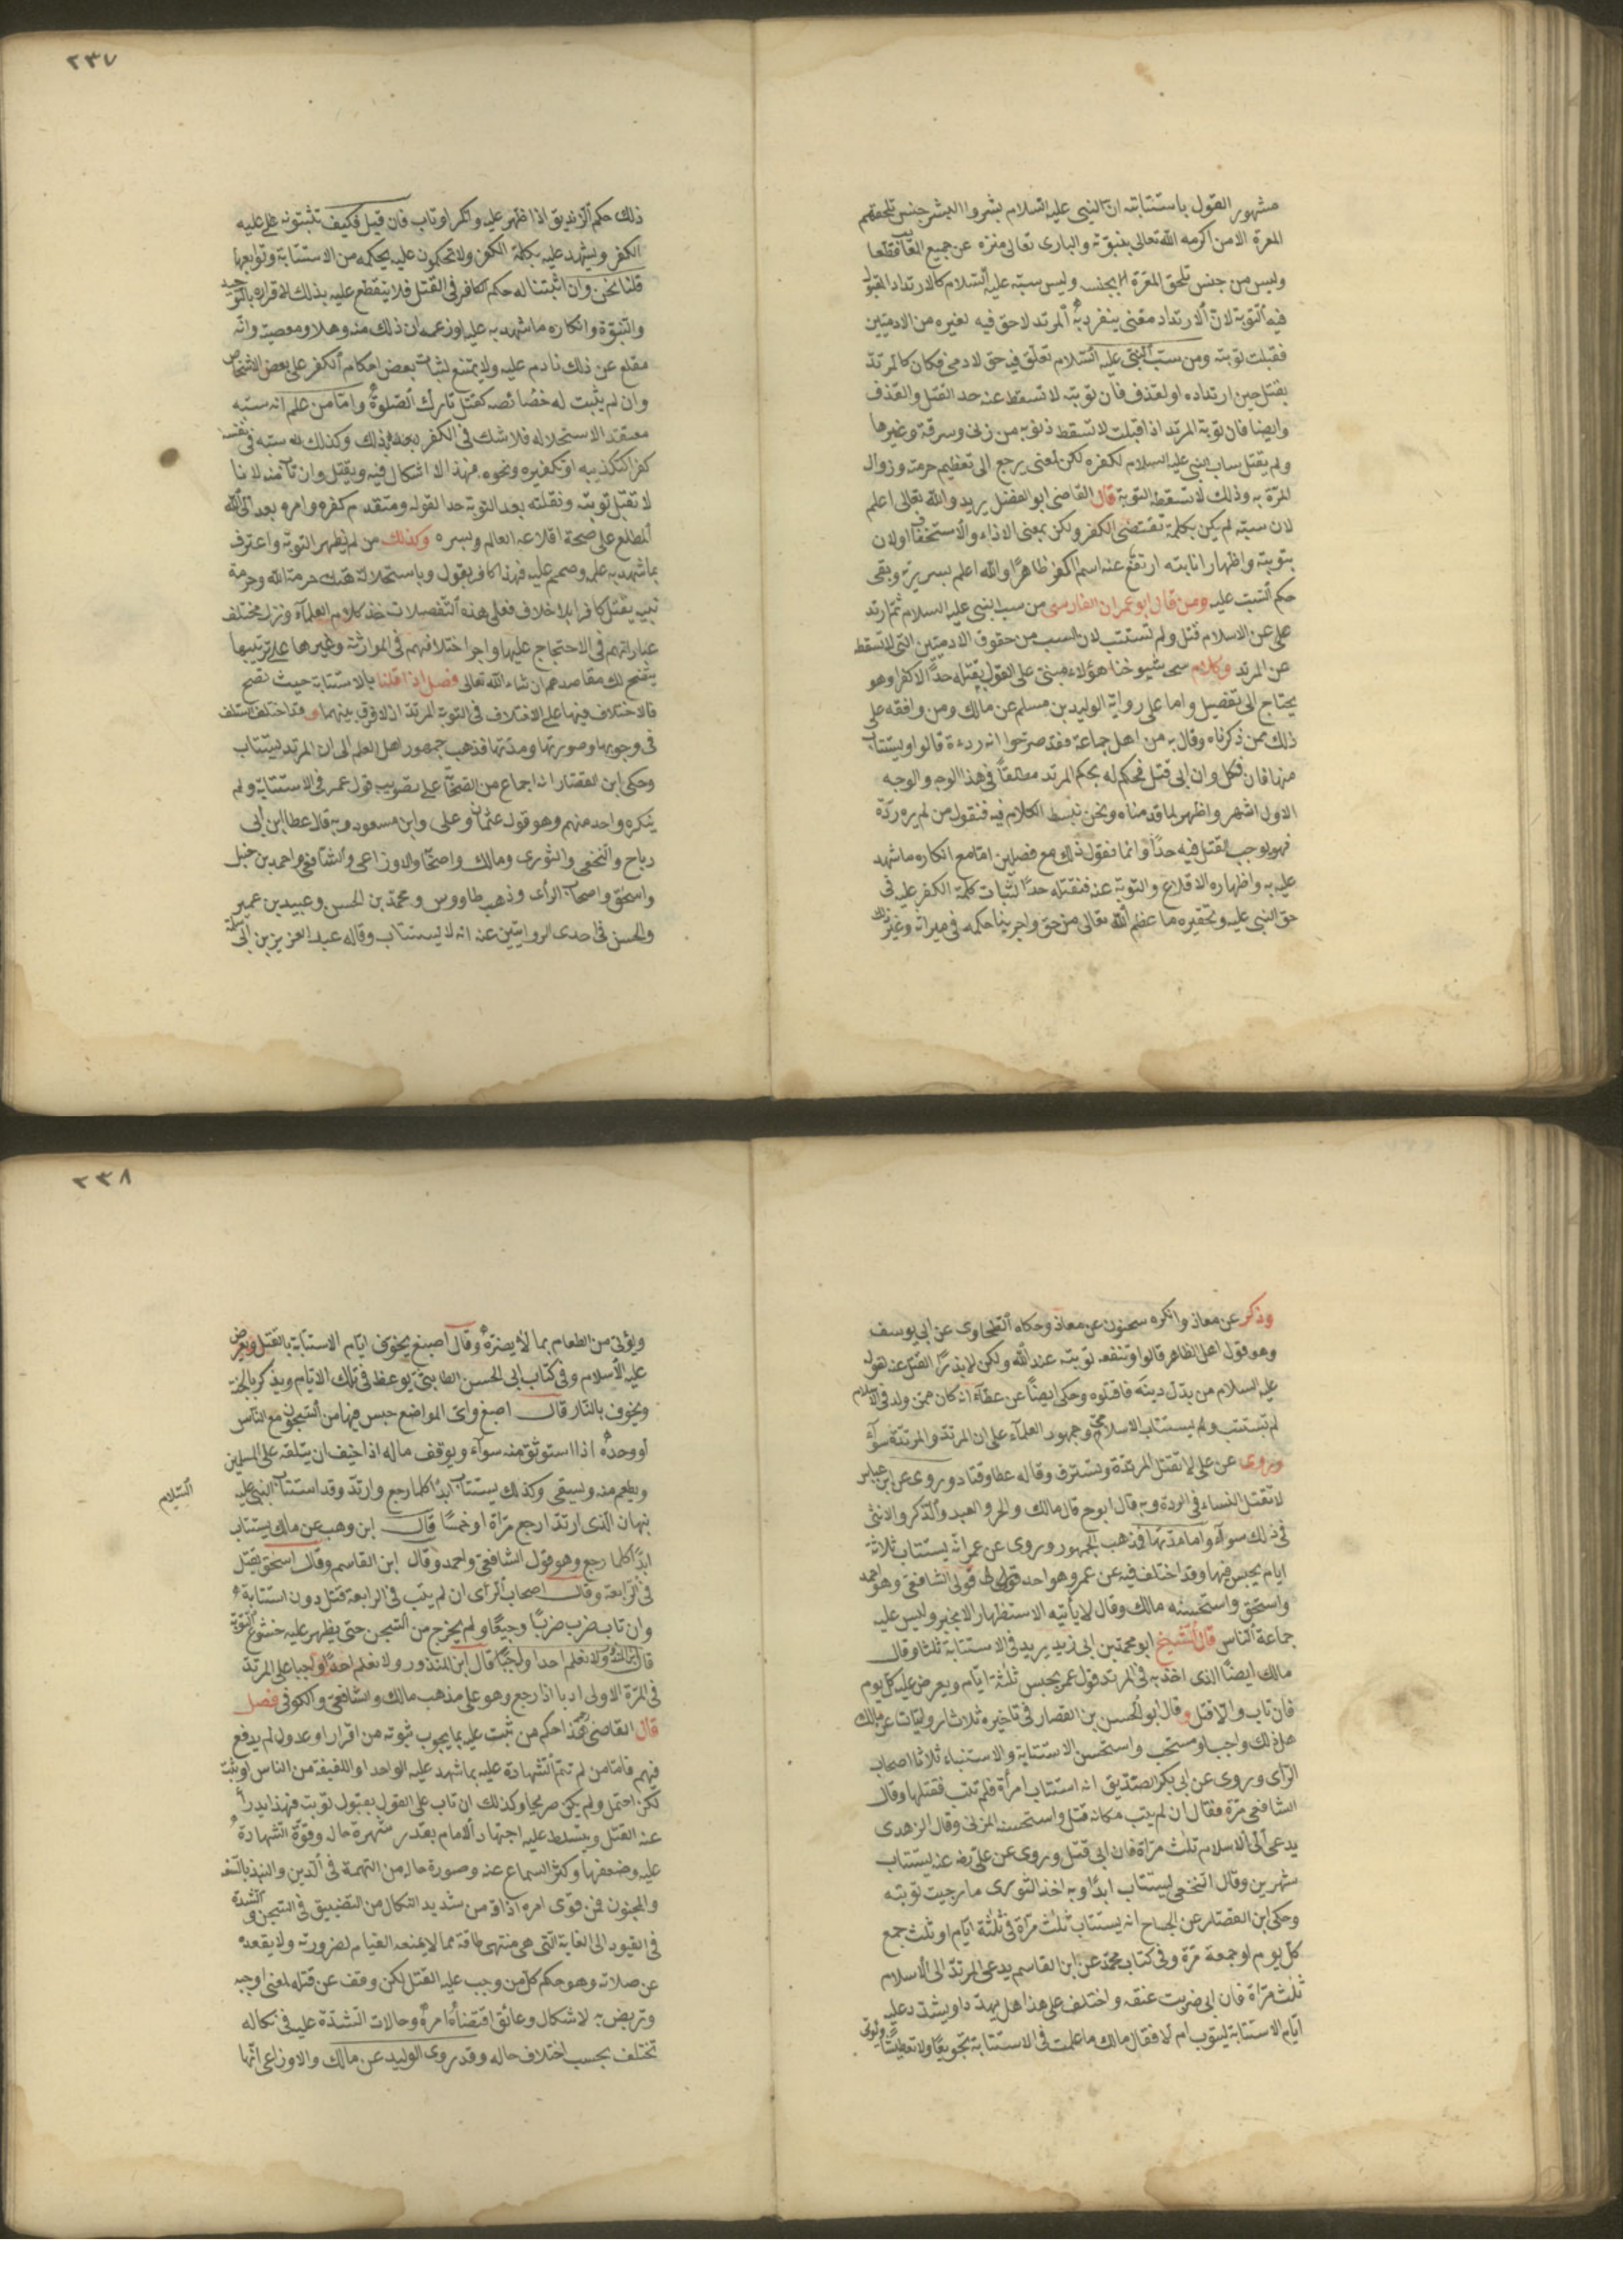 مشهور القول باستتابته ان النبى عليه السلام بشر والبشر جنس تلحقهم
المعرة الا من اكرمه الله تعالى بنبوّته والبارى تعالى منزه عن جميع المعايب قطعا
وليس من جنس تلحق المعرّة بجنسه وليس سبّه عليه السلام كالارتداد المقبول
فيه التوبة لان الارتداد معنى ينفرد به المرتد لا حق فيه لغيره من الادميّين
فقبلت توبته ومن سبّ النبى عليه السلام تعلّق فيه حق لادمى فكان كالمرتدّ
يقتل حين ارتداده او لقذف فان توبته لا تسقط عنه حد القتل والقذف
وايضا فان توبة المرتد اذا قبلت لا تسقط ذنوبه من زنى وسرقة وغيرها
ولم يقتل ساب النبى عليه السلام لكفره لكن لمعنى يرجع الى تعظيم حرمته وزوال
المعرّة به وذلك لا تسقطه التوبة قال القاضى ابو الفضل يريد والله تعالى اعلم
لان سبّه لم يكن بكلمة تقتضى الكفر ولكن بمعنى الاذاء والاستخفاف او لان
بتوبته واظهار انابته ارتفع عنه اسم الكفر ظاهرًا والله اعلم بسريرته وبقى
حكم السّب عليه ومن قال ابو عمران الفارسى من سب النبى عليه السلام ثمّ ارتد
على عن الاسلام قتل ولم تستتب لان السب من حقوق الادميّين التى لا تسقط
عن المرتد وكلام شيوخنا هؤلاء مبنى على القول بقتله حدًّا لا كفرا وهو
يحتاج الى تفصيل واما على رواية الوليد بن مسلم عن مالك ومن وافقه على
ذلك ممن ذكرناه وقال به من اهل جماعة فقد صرّحوا انه ردة قالوا ويستتاب
منها فان نكل وان ابى قتل فحكم له بحكم المرتد مطلقًا فى هذا الوجه والوجه
الاول اشهر واظهر لما قدمناه ونحن نبسط الكلام فيه فنقول من لم يره ردّة
فهو يوجب القتل فيه حدًا وانما نقول ذلك مع فصلين امّا مع انكاره ما شهد
عليه به واظهاره الاقلاع والتوبة عنه فنقتله حدًا لثبات كلمة الكفر عليه فى
حق النبى عليه وتحقيره ما عظم الله تعالى من حق واجرينا حكمه فى ميراثه وغير ذلك
٢٣٧
ذلك حكم الزنديق اذا ظهر عليه وانكر او تاب فان قيل فكيف تثبتونه على عليه
الكفر ويشهد عليه بكلمة الكفر ولا تحكمون عليه بحكمه من الاستتابة وتوابعها
قلنا نحن وان اثبتنا له حكم الكافر فى القتل فلا ينقطع عليه بذلك لاقراره بالتوحيد
والنبوّة وانكاره ما شهد به عليه او زعمه ان ذلك منه وهلا ومعصية وانّه
مقلع عن ذلك نادم عليه ولا يمتنع لثبات بعض احكام الكفر على بعض الاشخاص
وان لم يثبت له خصائصه كقتل تارك الصّلوة وامّا من علم انه سبّه
معتقد الاستحلاله فلا شك فى الكفر بذلك وكذلك سبّه فى نفسه
كفرا كتكذيبه او تكفيره ونحوه فهذا لا اشكال فيه ويقتل وان تاب منه لانا
لا تقبل توبته ونقلته بعد التوبة حدا لقوله ومتقدم كفره وامره بعد الى الله
المطلع على صحة اقلاعه العالم وبسره وكذلك من لم يظهر التوبة واعترف
بما شهد به عليه وصمم عليه فهذا كافر بقوله وباستحلاله هتك حرمة الله وحرمة
نبيه يقتل كافرا بلا خلاف فعلى هذه التفصيلات خذ كلام العلمآء ونزل مختلف
عباراتهم فى الاحتجاج عليها واجر اختلافهم فى الموارثة وغيرها على ترتيبها
يتّضح لك مقاصدهم ان شاء الله تعالى فصل اذا قلنا بالاستتابة حيث تصح
فالاختلاف فيها على الاختلاف فى التوبة المرتدّ اذ لا فرق بينهما وقد اختلف السلف
فى وجوبها وصورتها ومدتها فذهب جمهور اهل العلم الى ان المرتد يستتاب
وحكى ابن القصّار انه اجماع من الصّحابة على تصويب قول عمر فى الاستتابة ولم
ينكره واحد منهم وهو قول عثمان وعلى وابن مسعود وبه قال عطا ابن أبى
رباح والنخعى والثورى ومالك واصحابه والاوزاعى والشافعى واحمد بن حنبل
واسحق واصحاب الرأى وذهب طاووس ومحمّد بن الحسن وعبيد بن عمير
والحسن فى احدى الروايتين عنه انه لا يستتاب وقاله عبد العزيز بن أبى سلمة
وذكر عن معاذ وانكره سحنون عن معاذ وحكاه الطحاوى عن ابى يوسف
وهو قول اهل الظاهر قالوا وتنفعه توبته عند الله ولكن لا يدرأ القتل عنه لقوله
عليه السلام من بدّل دينه فاقتلوه وحكى ايضًا عن عطآء انه كان ممن ولد فى الاسلام
لم تستتب ولم يستتاب الاسلامى وجمهور العلمآء على ان المرتدّ والمرتدة سوآء
وروى عن على لا تقتل المرتدّة وتسترق وقاله عطا وقتاد وروى عن ابن عباس
لا تقتل النساء فى الردة وبه قال ابو ح قال مالك والحر والعبد والذّكر والانثى
فى ذلك سوآء واما مدتها فذهب الجمهور وروى عن عمر انّه يستتاب ثلاثة
ايام يحبس فيها وقد اختلف فيه عن عمر وهو احد قولى الشافعى وهو احمد
واسحق واستحسنه مالك وقال لا يأتيه الاستظهار الا بخير وليس عليه
جماعة الناس قال الشيخ ابو محمّد بن ابى زيد يريد فى الاستتابة ثلثا وقال
مالك ايضًا الذى اخذ به فى المرتد قول عمر يحبس ثلثة ايّام ويعرض عليه كل يوم
فان تاب والّا قتل وقال ابو الحسن بن القصار فى تاخيره ثلاثا روايتان عن مالك
هل ذلك واجب او مستحب واستحسن الاستتابة والاستيناء ثلاثا اصحاب
الرّاى وروى عن ابى بكر الصّدّيق انه استتاب امرأة فلم تتب فقتلها وقال
الشافعى مرّة فقال ان لم يتب مكانه قتل واستحسنه المزنى وقال الزهرى
يدعى الى الاسلام ثلث مرّاة فان ابى قتل وروى عن على رضه عنه يستتاب
شهرين وقال النخعى ليستتاب ابدًا وبه اخذ الثورى ما رجيت توبته
وحكى ابن القصّار عن ابى ح انه يستتاب ثلث مرّاة فى ثلثة ايّام او ثلث جمع
كل يوم او جمعة مرّة وفى كتاب محمّد عن ابن القاسم يدعى المرتدّ الى الاسلام
ثلث مرّاة فان ابى ضربت عنقه واختلف على هذا هل يهدّد او يشدّد عليه
ايّام الاستتابة ليتوب ام لا فقال مالك ما علمت فى الاستتابة تجويعًا ولا تعطيشًا ويؤتى
٢٣٨
ويؤتى من الطعام بما لا يضرّه وقال اصبغ يخوف ايّام الاستتابة بالقتل ويعرض
عليه الاسلام وفى كتاب ابى الحسن الطابثى يوعظ فى تلك الايّام ويذكر بالجنة
ويخوف بالنّار قال اصبغ واى المواضع حبس فيها من السّجون مع الناس
أو وحده اذا استوثق منه سوآء ويوقف ماله اذا خيف ان يتلفه على المسلمين
ويطعم منه ويسقى وكذلك يستتاب ابدًا كلما رجع وارتدّ وقد استتاب النبى عليه
السّلام
نبهان الّذى ارتدّ اربع مرّاة او خمسًا قال ابن وهب عن مالك يستتاب
ابدًا كلما رجع وهو قول الشافعى واحمد وقال ابن القاسم وقال اسحق يقتل
فى الرّابعة وقال اصحاب الرّأى ان لم يتب فى الرابعة قتل دون استتابة
وان تاب ضرب ضربًا وجيعًا ولم يخرج من السّجن حتى يظهر عليه خشوع التوبة
قال ابن المنذور ولا نعلم احدًا اوجبا على المرتدّ
فى المرّة الاولى ادبا اذا رجع وهو على مذهب مالك والشافعى والكوفى فصل
قال القاضى هذا حكم من ثبت عليه بما يجوب ثبوته من اقرار او عدول لم يدفع
فيهم فامّا من لم تتم الشّهادة عليه بما شهد عليه الواحد او اللفيفة من الناس او ثبت
لكن احتمل ولم يكن صريحا وكذلك ان تاب على القول بقبول توبته فهذا يدرأ
عنه القتل ويتسلط عليه اجتهاد الامام بقدر شهرة حاله وقوّة الشّهادة
عليه وضعفها وكثر السماع عنه وصورة حاله من التهمة فى الدين والنبذ بالسّفه
والمجنون فمن قوى امره اذاقه من شديد النكال من التضييق فى السّجن والشّدة
فى القيود الى الغاية التى هى منتهى طاقة مما لا يمنعه القيام لضرورته ولا يقعده
عن صلاته وهو حكم كل من وجب عليه القتل لكن وقف عن قتله لمعنى اوجبه
وتربص به لاشكال وعائق اقتضاه امره وحالات الشّدّة عليه فى نكاله
تختلف بحسب اختلاف حاله وقد روى الوليد عن مالك والاوزاعى انّها